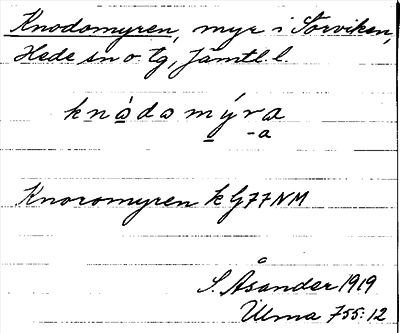 Knodomyren, myr i Storviken,
Hede sn o. tg, Jämtl. l.
knȧ̀do mýra
-a
Knoromyren k G77NM
S. Åsander 1919
Ulma 755:12